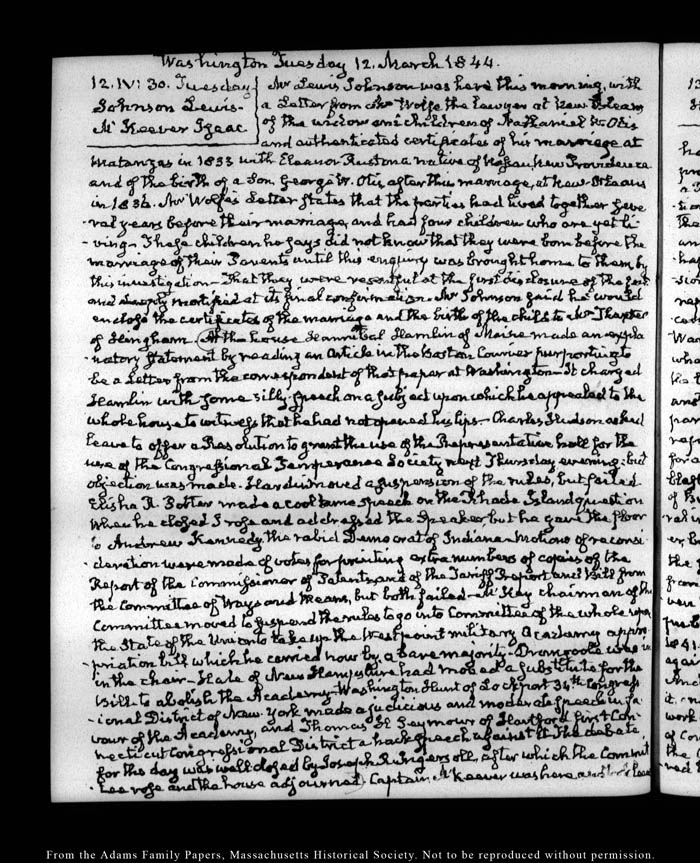 Washington Tuesday 12. March 1844.
12. IV: 30. Tuesday
Johnson Lewis-
McKeever Isaac
Mr Lewis Johnson was here this morning, with
a Letter from Mr Wolfe the lawyer at New Orleans
of the widow and children of Nathaniel W. Otis
and authenticated certificates of his marriage at
Matanzas in 1833 with Eleanor Ruston a native of Nassau, New Providence
and of the birth of a Son, George W. Otis, after this marriage, at New-Orleans
in 1836. Mr Wolfe's Letter states that the parties had lived together seve
-ral years before their marriage, and had four children who are yet li-
-ving- These children he says did not know that they were born before the
marriage of their Parents until this enquiry was brought home to them, by
this investigation- That they were resentful at the first disclosure of the fact
and deeply mortified at its final confirmation. Mr Johnson said he would
enclose the certificates of the marriage and the birth of the child to Mr Thaxter
of Hingham. At the house Hannibal Hamlin of Maine made an expla
-natory statement by reading an Article in the Boston Courier purporting to
be a Letter from the correspondent of that paper at Washington- It charged
Hamlin with some silly speech on a subject upon which he appealed to the
whole house to witness that he had not opened his lips- Charles Hudson asked
leave to offer a Resolution to grant the use of the Representation hall for the
use of the Congressional Temperance Society next Thursday evening; but
objection was made. Hardin moved a suspension of the rules, but failed-
Elisha R. Potter made a cool tame speech on the Rhode Island question
When he closed I rose and addressed the Speaker but he gave the floor
to Andrew Kennedy the rabid Democrat of Indiana- Motions of reconsi
-deration were made of votes for printing extra numbers of copies of the
Report of the Commissioner of Patents, and of the Tariff Report and Bill from
the Committee of Ways and Means, but both failed- McKay chairman of the
Committee moved to suspend the rules to go into Committee of the whole upon
the State of the Union to take up the West point military Academy appro
-priation bill which he carried now by a bare majority- Dromgoole was
in the chair- Hale of New Hampshire had moved a substitute for the
Bill- to abolish the Academy- Washington Hunt of Lockport 34th Congress
-ional District of New-York made a judicious and moderate speech in fa
-vour of the Academy, and Thomas H Seymour of Hartford first Con-
necticut Congressional District a hack speech against it. The debate
for the day was well closed by Joseph R. Ingersoll, after which the Commit
-tee rose and the house adjourned. Captain McKeever was here and took leave
From the Adams Family Papers, Massachusetts Historical Society. Not to be reproduced without permission.